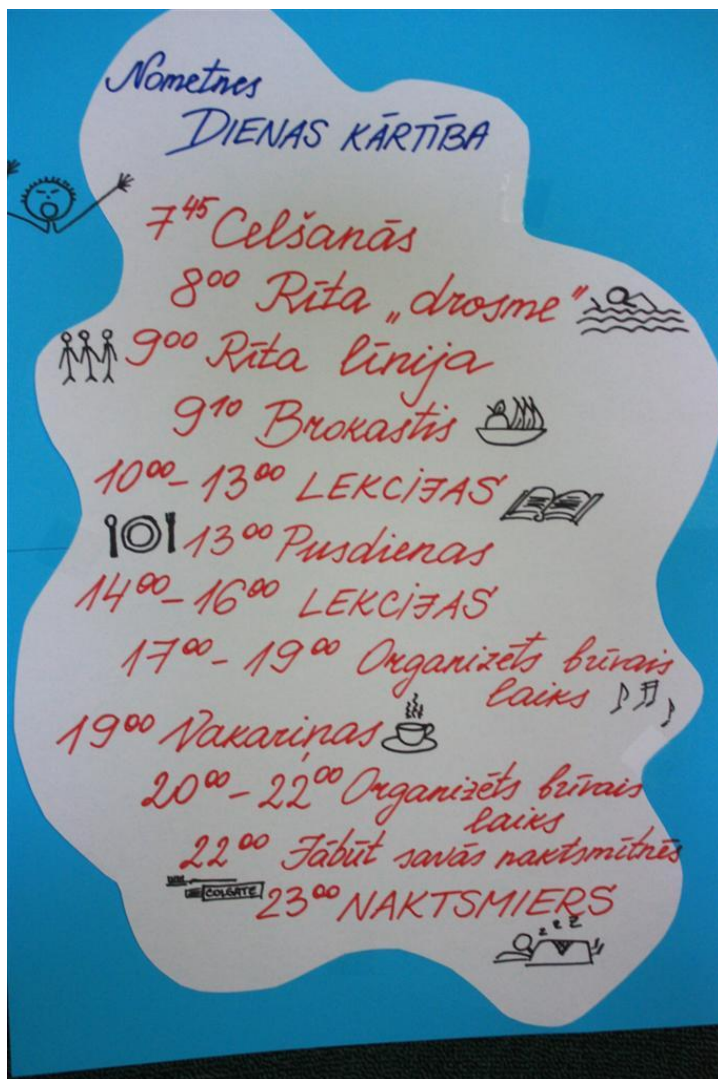 Nometnes
DIENAS KĀRTĪBA
7⁴⁵ Celšanās
8⁰⁰ Rīta „drosme"
9⁰⁰ Rīta līnija
9¹⁰ Brokastis
10⁰⁰-13⁰⁰ LEKCIJAS
13⁰⁰ Pusdienas
14⁰⁰-16⁰⁰ LEKCIJAS
17⁰⁰-19⁰⁰ Organizēts brīvais
laiks
19⁰⁰ Vakariņas
20⁰⁰-22⁰⁰ Organizēts brīvais
laiks
22⁰⁰ Jābūt savās naktsmītnēs
COLGATE
23⁰⁰ NAKTSMIERS
z z z